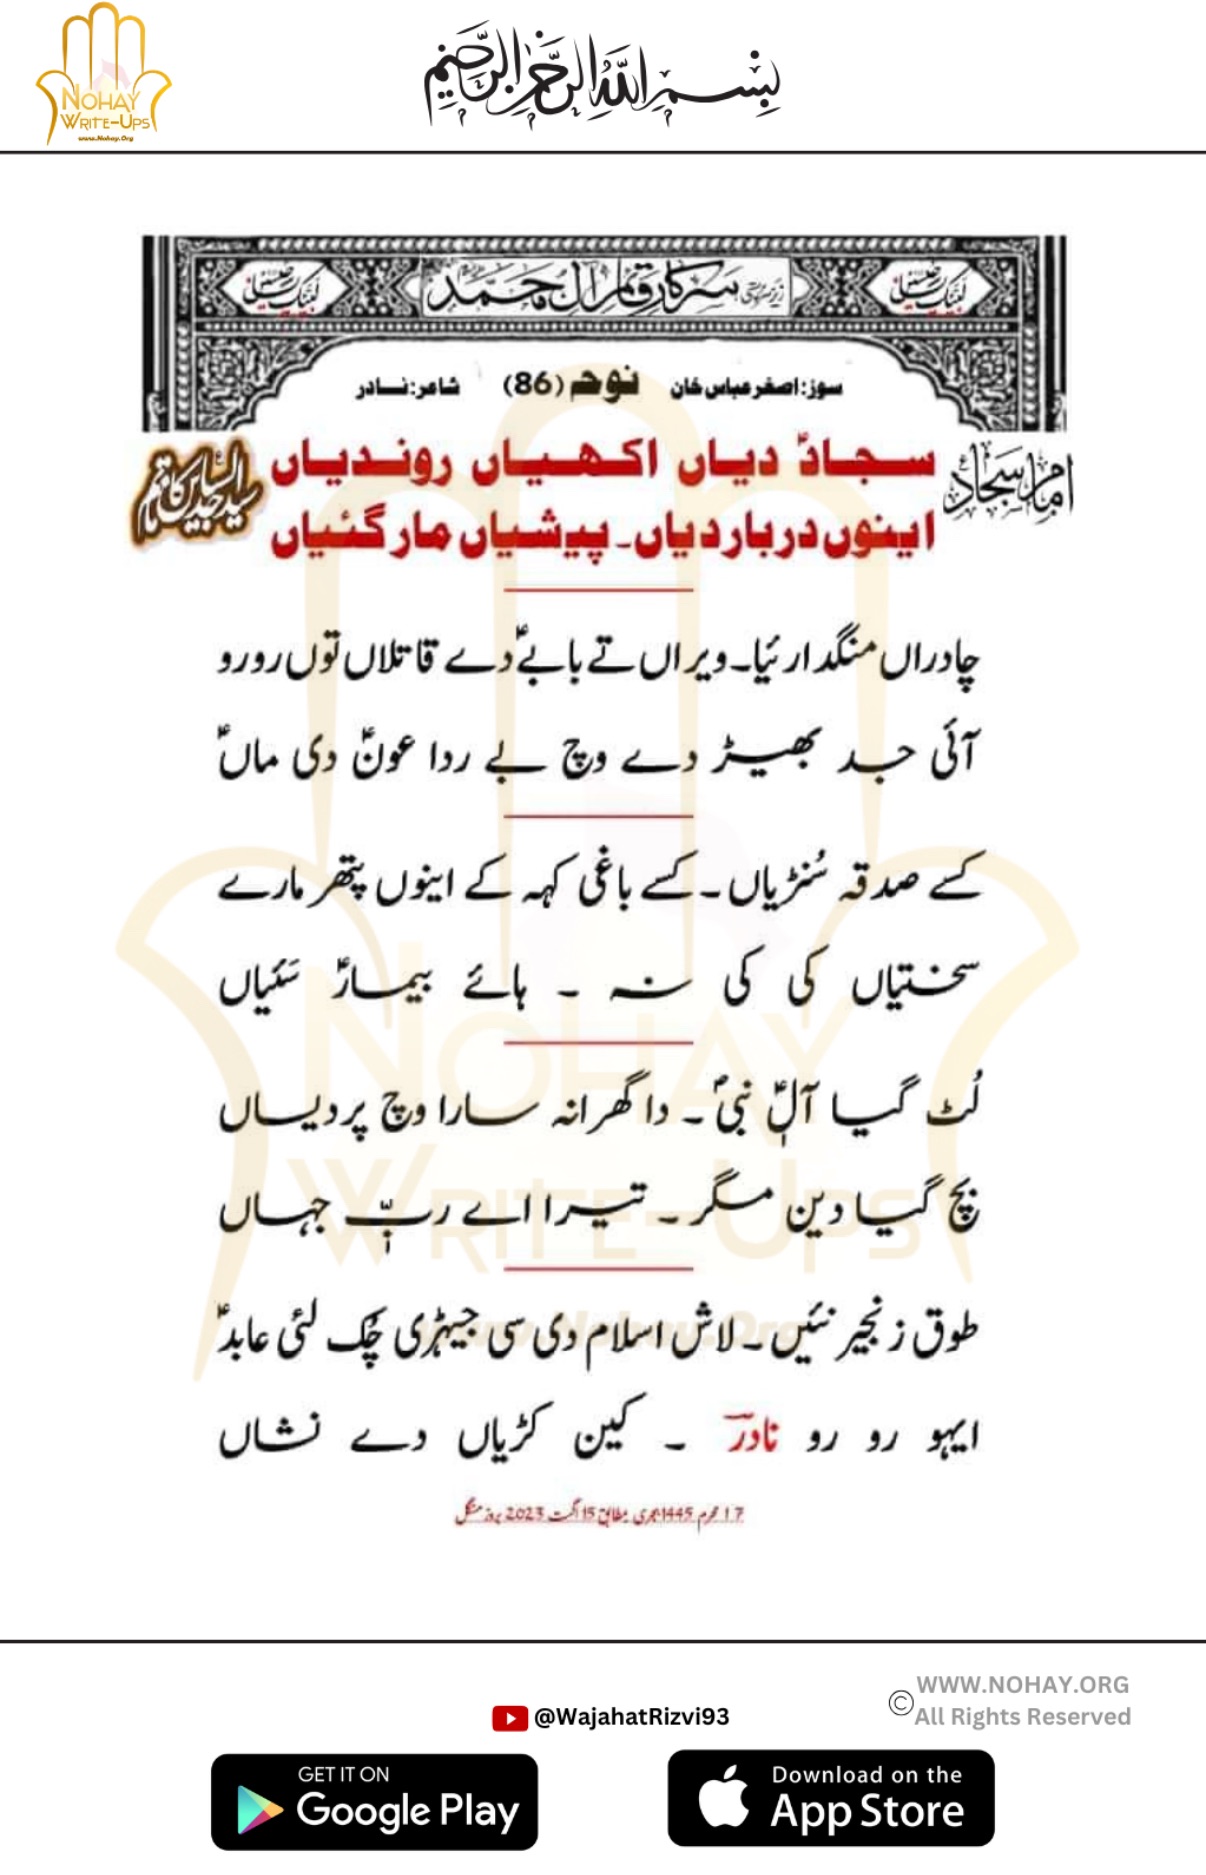 NOHAY
WRITE-UPS
www.Nohay.Org
بسم الله الرحمن الرحيم
سرکار قائم آل محمد
سوز: اصغر عباس خان نوحہ (86) شاعر: نادر
امام سجادؑ
سجادؑ دیاں اکھیاں روندیاں
اینوں دربار دیاں۔ پیشیاں مار گئیاں
سید الساجدینؑ کا ماتم
چادراں منگدا رئیا۔ ویراں تے بابےؑ دے قاتلاں توں رو رو
آئی جد بھیڑ دے وچ بے ردا عونؑ دی ماںؑ
کسے صدقہ سُنڑیاں۔ کسے باغی کہہ کے اینوں پتھر مارے
سختیاں کی کی نہ ۔ ہائے بیمارؑ سَئیاں
لُٹ گیا آلِؑ نبیؐ ۔ دا گھرانہ سارا وچ پردیساں
بچ گیا دین مگر ۔ تیرا اے ربِّ جہاں
طوق زنجیر نئیں۔ لاش اسلام دی سی جیہڑی چُک لئی عابدؑ
ایہو رو رو نادرؔ ۔ کین کڑیاں دے نشاں
17 محرم 1445 ہجری مطابق 15 اگست 2023 بروز منگل
NOHAY
WRITE-UPS
www.Nohay.Org
@WajahatRizvi93
© WWW.NOHAY.ORG
All Rights Reserved
GET IT ON
Google Play
Download on the
App Store